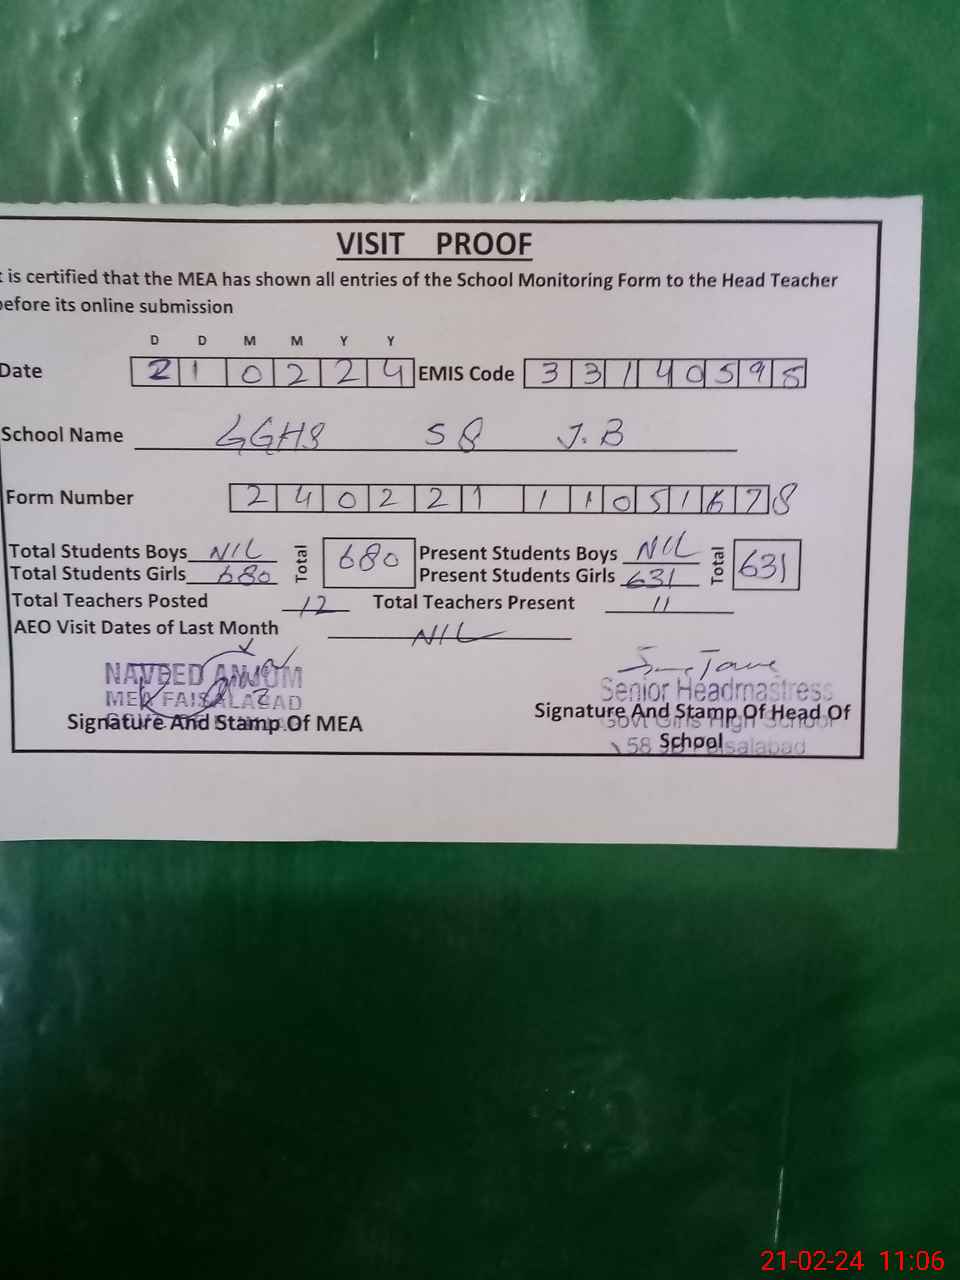 VISIT PROOF
t is certified that the MEA has shown all entries of the School Monitoring Form to the Head Teacher
before its online submission
D D M M Y Y
Date 2 1 0 2 2 4 EMIS Code 3 3 1 4 0 5 9 8
School Name GGHS 58 J.B
Form Number 2 4 0 2 2 1 1 1 0 5 1 6 7 8
Total Students Boys NIL Total 680 Present Students Boys NIL Total 631
Total Students Girls 680 Present Students Girls 631
Total Teachers Posted 12 Total Teachers Present 11
AEO Visit Dates of Last Month NIL
NAVEED ANJUM
MEA FAISALABAD
Signature And Stamp Of MEA
Senior Headmastress
Signature And Stamp Of Head Of
Govt Girls High School
School
58 JB Faisalabad
21-02-24 11:06